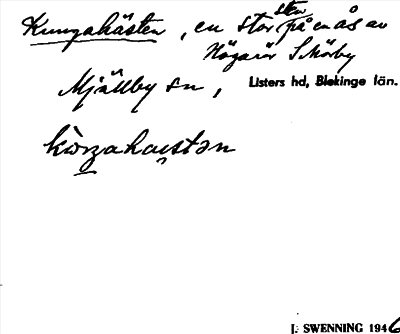 Kungahästen, en stor sten på en ås av
Högarör Skörby
Mjällby sn, Listers hd, Blekinge län.
J. SWENNING 1946